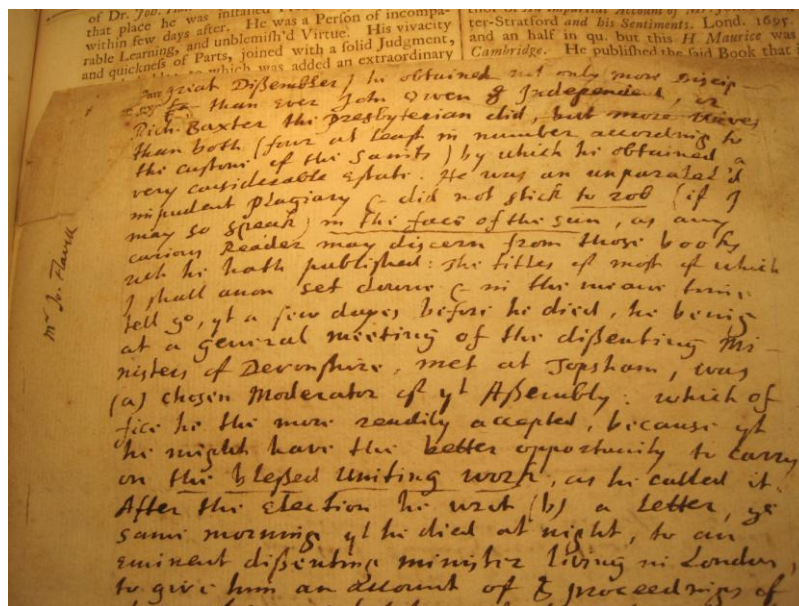 of Dr.
that place he was
within few days after. He was a Person of incompa-
rable Learning, and unblemish'd Virtue. His vivacity
and quickness of Parts, joined with a solid Judgment,
to which was added an extraordinary
Account of
ter-Stratford and his Sentiments. Lond. 1695.
and an half in qu. but this H Maurice was
Cambridge. He published the said Book that i
great Dißembler) he obtained not only more Discip-
than ever John Owen Independent, or
Rich. Baxter the Presbyterian did, but more
than both (four at least in number according to
the custome of the Saints) by which he obtained a
very considerable Estate. He was an unparalel'd
impudent plagiary & did not stick to rob (if I
may so speak) in the face of the sun, as any
curious Reader may discern from those books
wch he hath published: the titles of most of which
I shall anon set downe & in the meane time
tell yo, yt a few dayes before he died, he being
at a general meeting of the dißenting Mi-
nisters of Devonshire, met at Topsham, was
(a) chosen Moderator of yt Aßembly: which of
fice he the more readily accepted, because yt
he might have the better opportunity to carry
on the bleßed Uniting work, as he called it.
After the Election he writ (b) a Letter, ye
same morning yt he died at night, to an
eminent dißenting minister living in London,
to give him an account of proceedings of
Mr Jo. Flavell